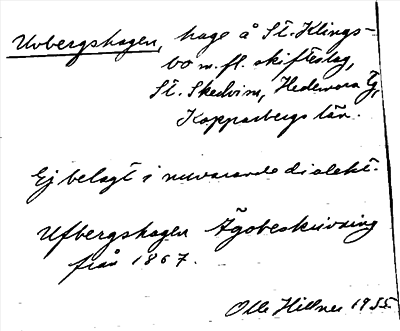 Uvbergshagen, hage å St. Klings-
bo m. fl. skifteslag,
St. Skedvim, Hedemora Tg,
Kopparbergs län.
Ej belagt i nuvarande dialekt.
Ufbergshagen Ägobeskrivning
från 1867.
Olle Hillner 1935